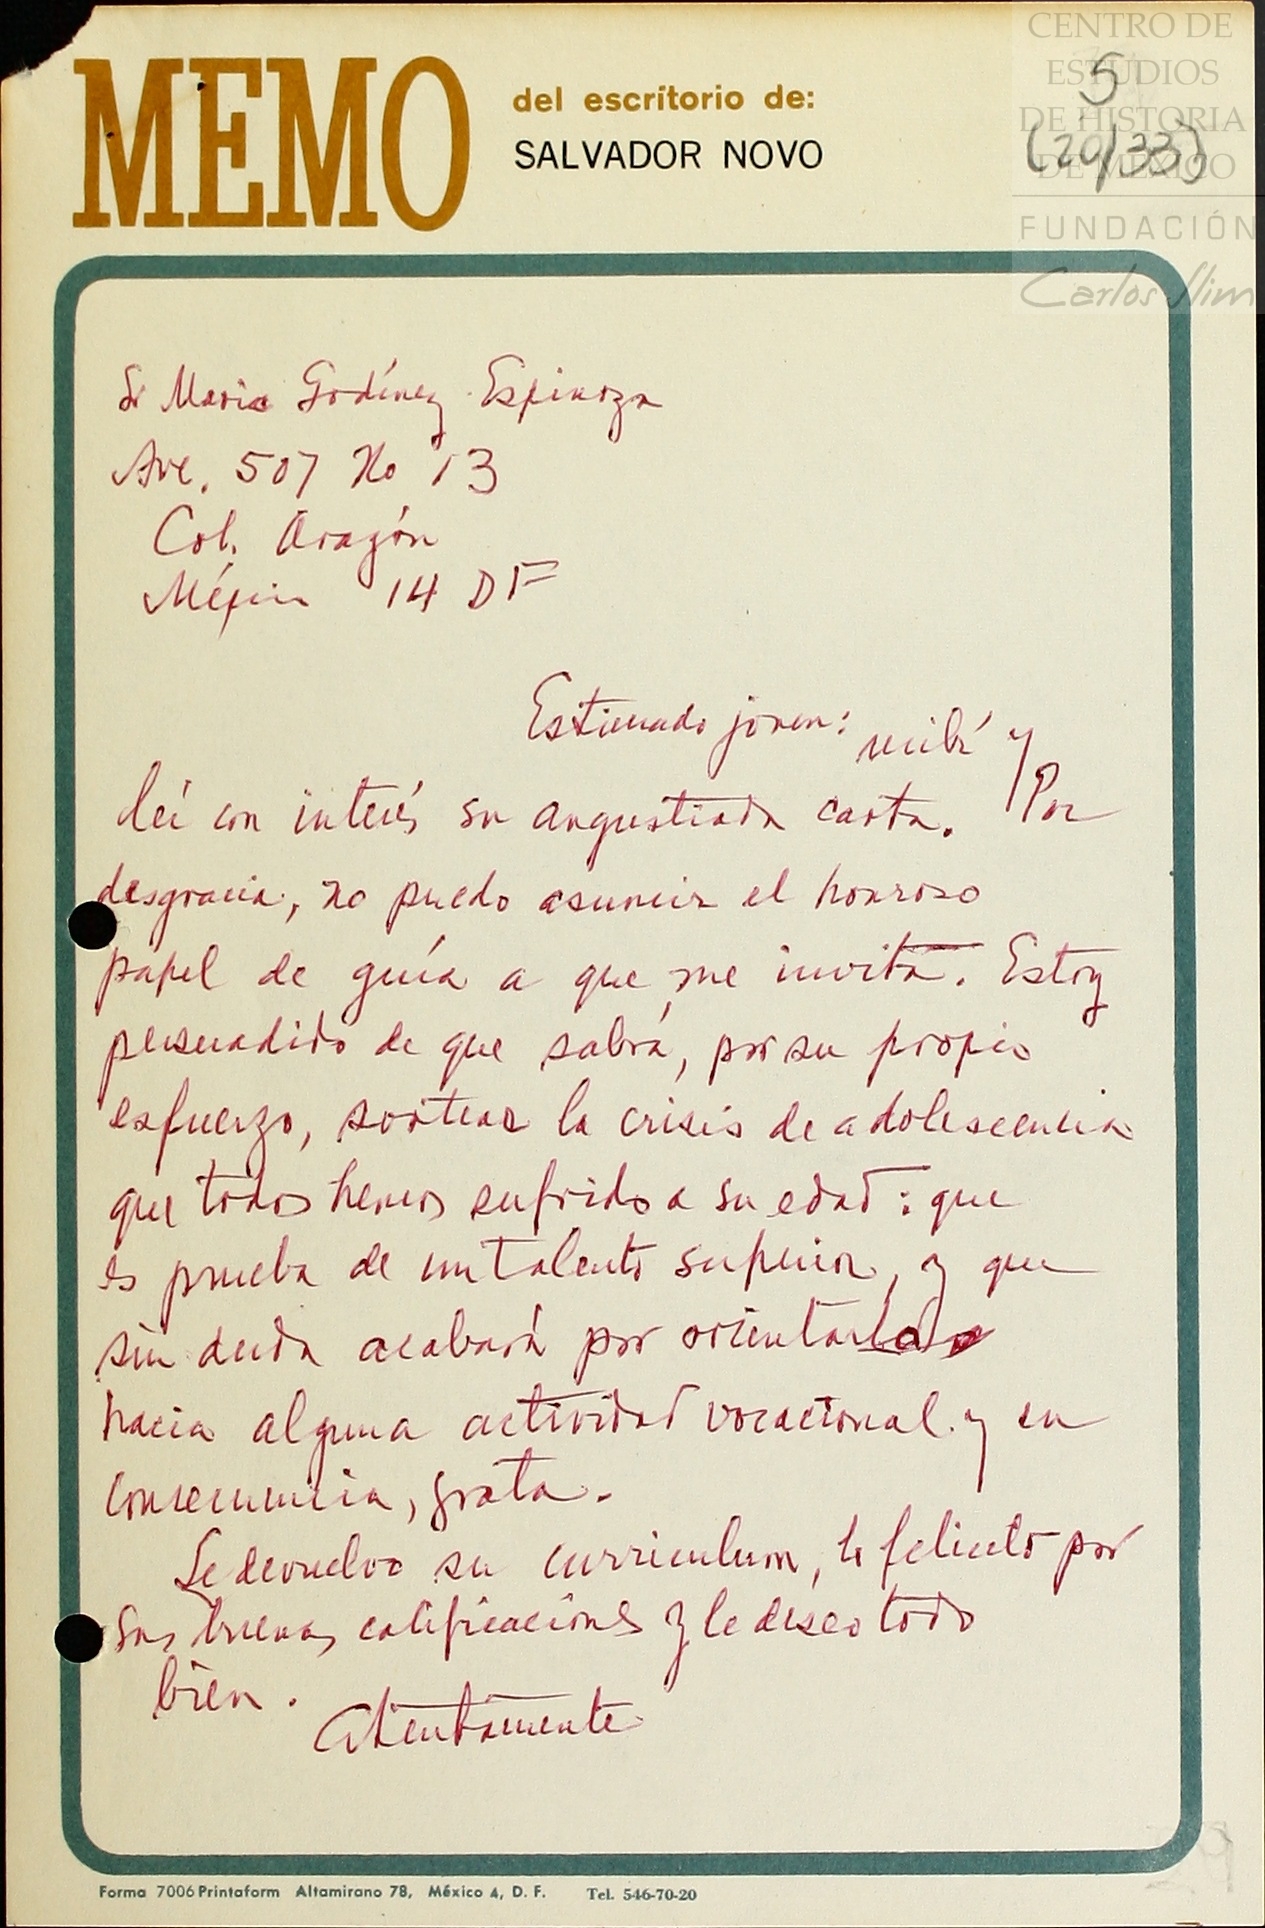 MEMO
del escritorio de:
SALVADOR NOVO
CENTRO DE
ESTUDIOS
DE HISTORIA
DE MÉXICO
FUNDACIÓN
Carlos Slim
5
(20/33)
Sr Mario Godínez Espinoza
Ave. 507 No 13
Col. Aragón
México 14 DF
Estimado joven: recibí y
leí con interés su angustiada carta. Por
desgracia, no puedo asumir el honroso
papel de guía a que me invita. Estoy
persuadido de que sabrá, por su propio
esfuerzo, sortear la crisis de adolescencia
que todos hemos sufrido a su edad: que
es prueba de un talento superior, y que
sin duda acabará por orientarlo
hacia alguna actividad vocacional y en
consecuencia, grata.
Le devuelvo su curriculum, le felicito por
sus buenas calificaciones y le deseo todo
bien.
Atentamente
Forma 7006 Printaform Altamirano 78, México 4, D. F. Tel. 546-70-20